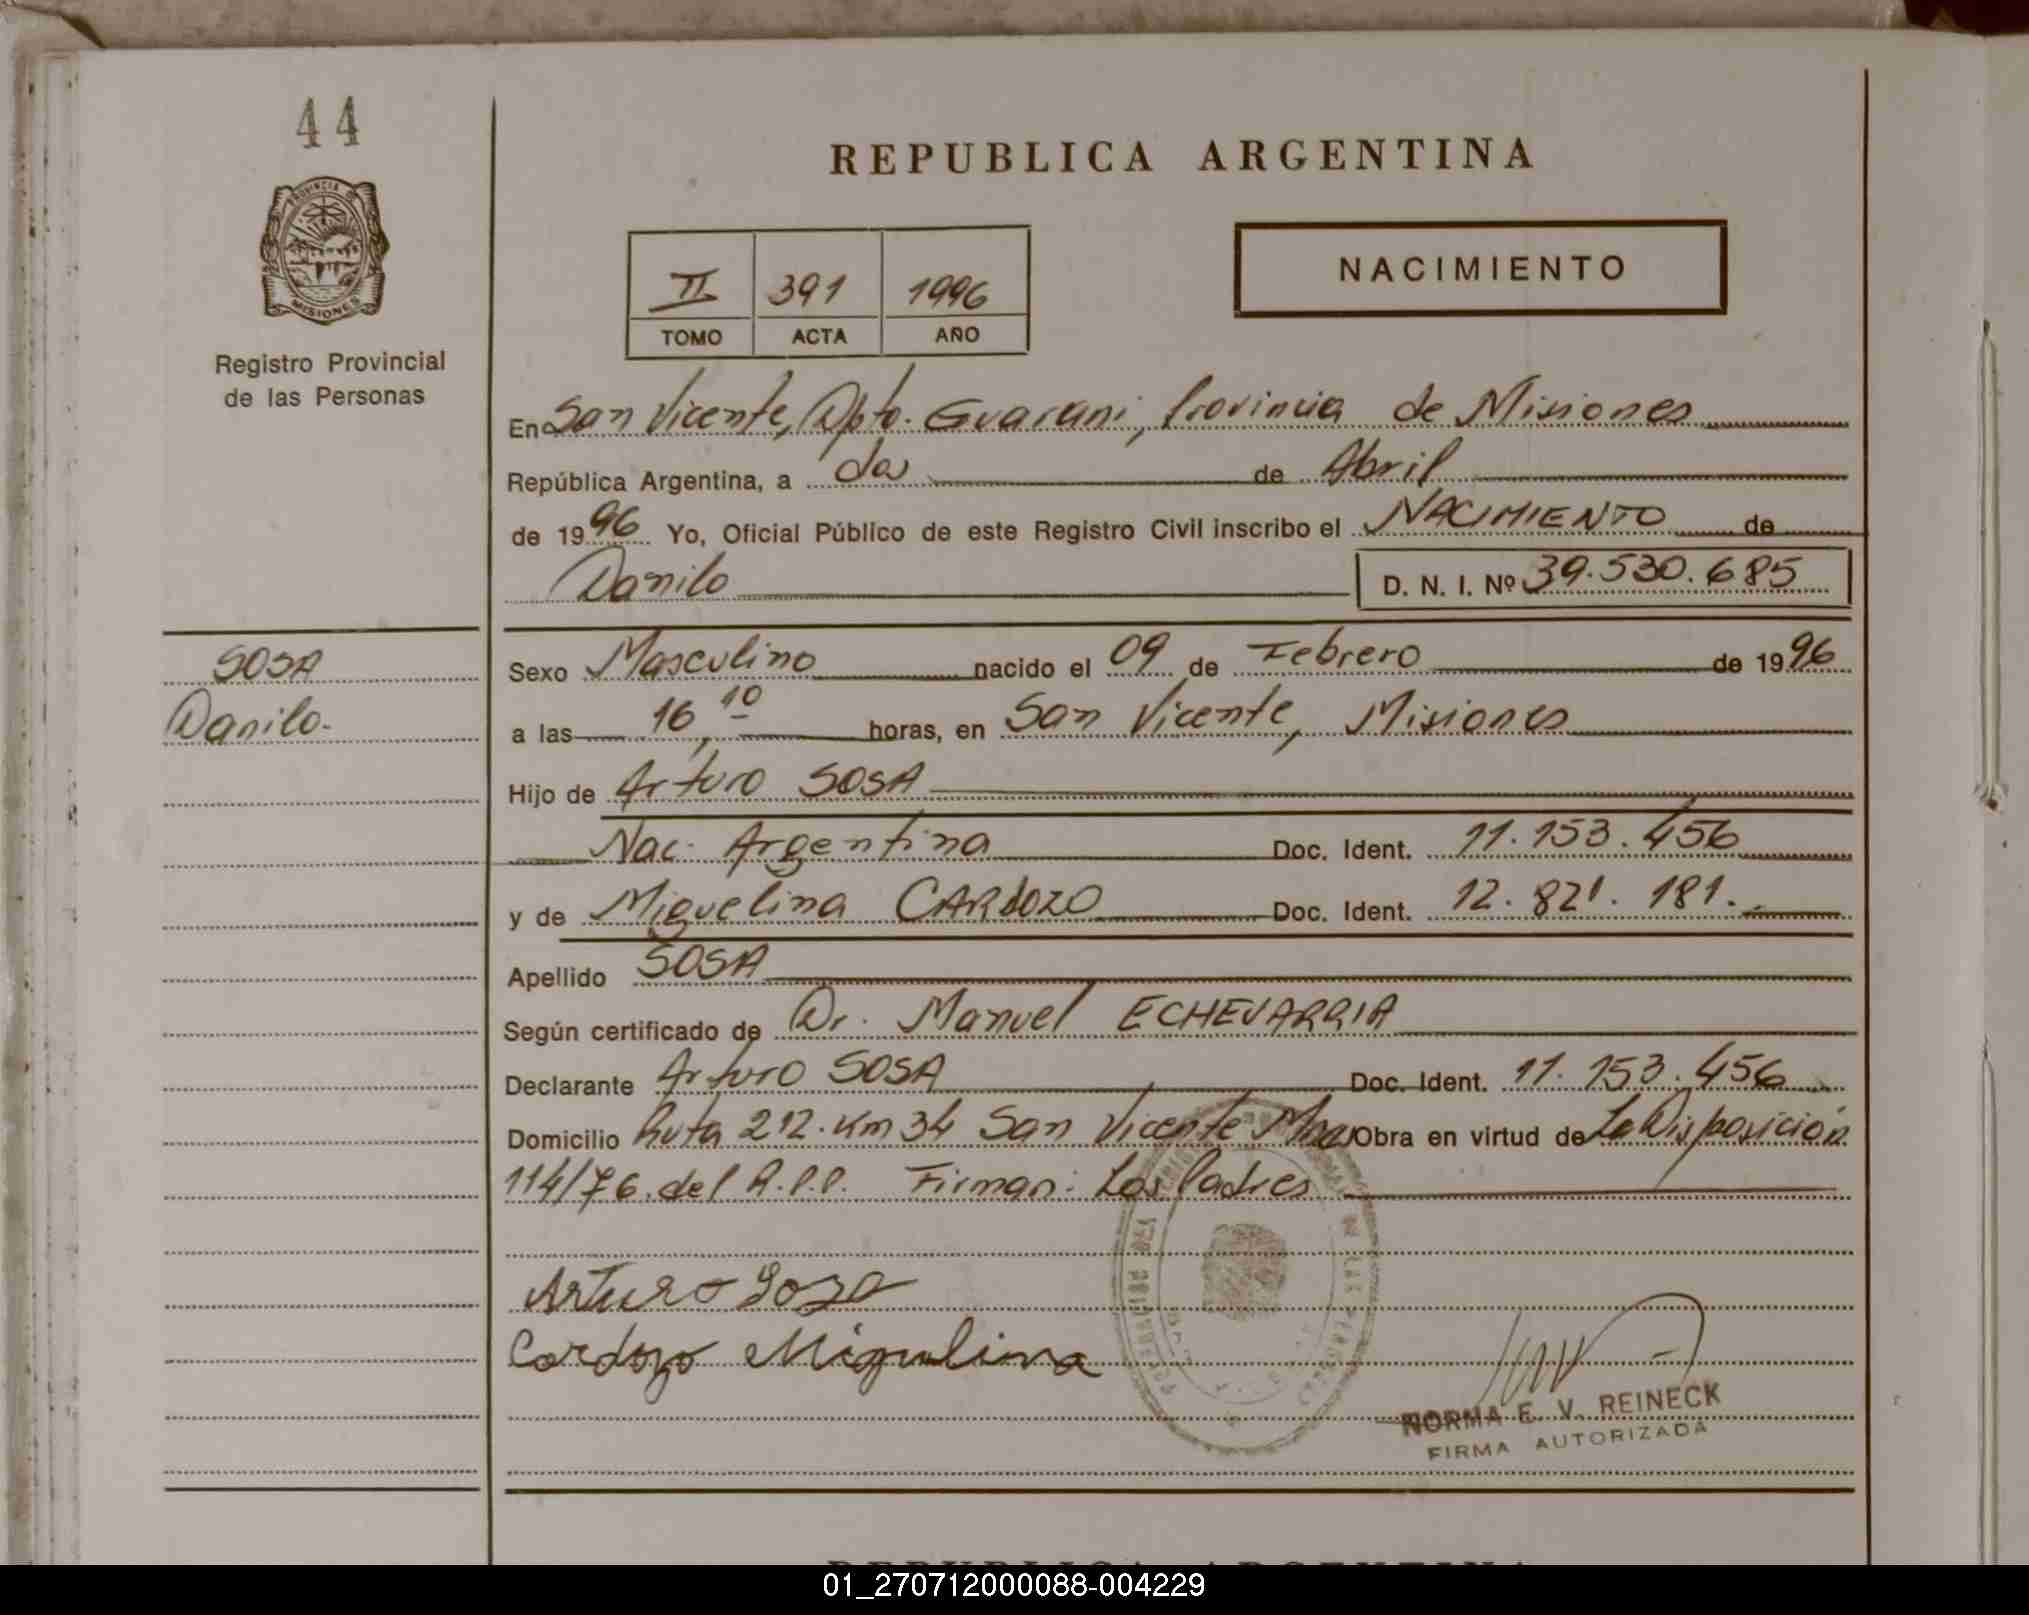 44
PROVINCIA DE
MISIONES
Registro Provincial
de las Personas
REPUBLICA ARGENTINA
II 391 1996
TOMO ACTA AÑO
NACIMIENTO
En San Vicente, Dpto. Guarani, Provincia de Misiones
República Argentina, a dos de Abril
de 1996 Yo, Oficial Público de este Registro Civil inscribo el NACIMIENTO de
Danilo D. N. I. Nº 39.530.685
SOSA
Danilo.
Sexo Masculino nacido el 09 de Febrero de 1996
a las 16,10 horas, en San Vicente, Misiones
Hijo de Arturo SOSA
Nac. Argentina Doc. Ident. 11.153.456
y de Miguelina CARDOZO Doc. Ident. 12.821.181.
Apellido SOSA
Según certificado de Dr. Manuel ECHEVARRIA
Declarante Arturo SOSA Doc. Ident. 11.153.456
Domicilio Ruta 212. Km 34 San Vicente Mnes Obra en virtud de La Disposición
114/76. del R.P.P. Firman: Los Padres
Arturo Sosa
Cardozo Miguelina
NORMA E. V. REINECK
FIRMA AUTORIZADA
REPUBLICA ARGENTINA
01_270712000088-004229